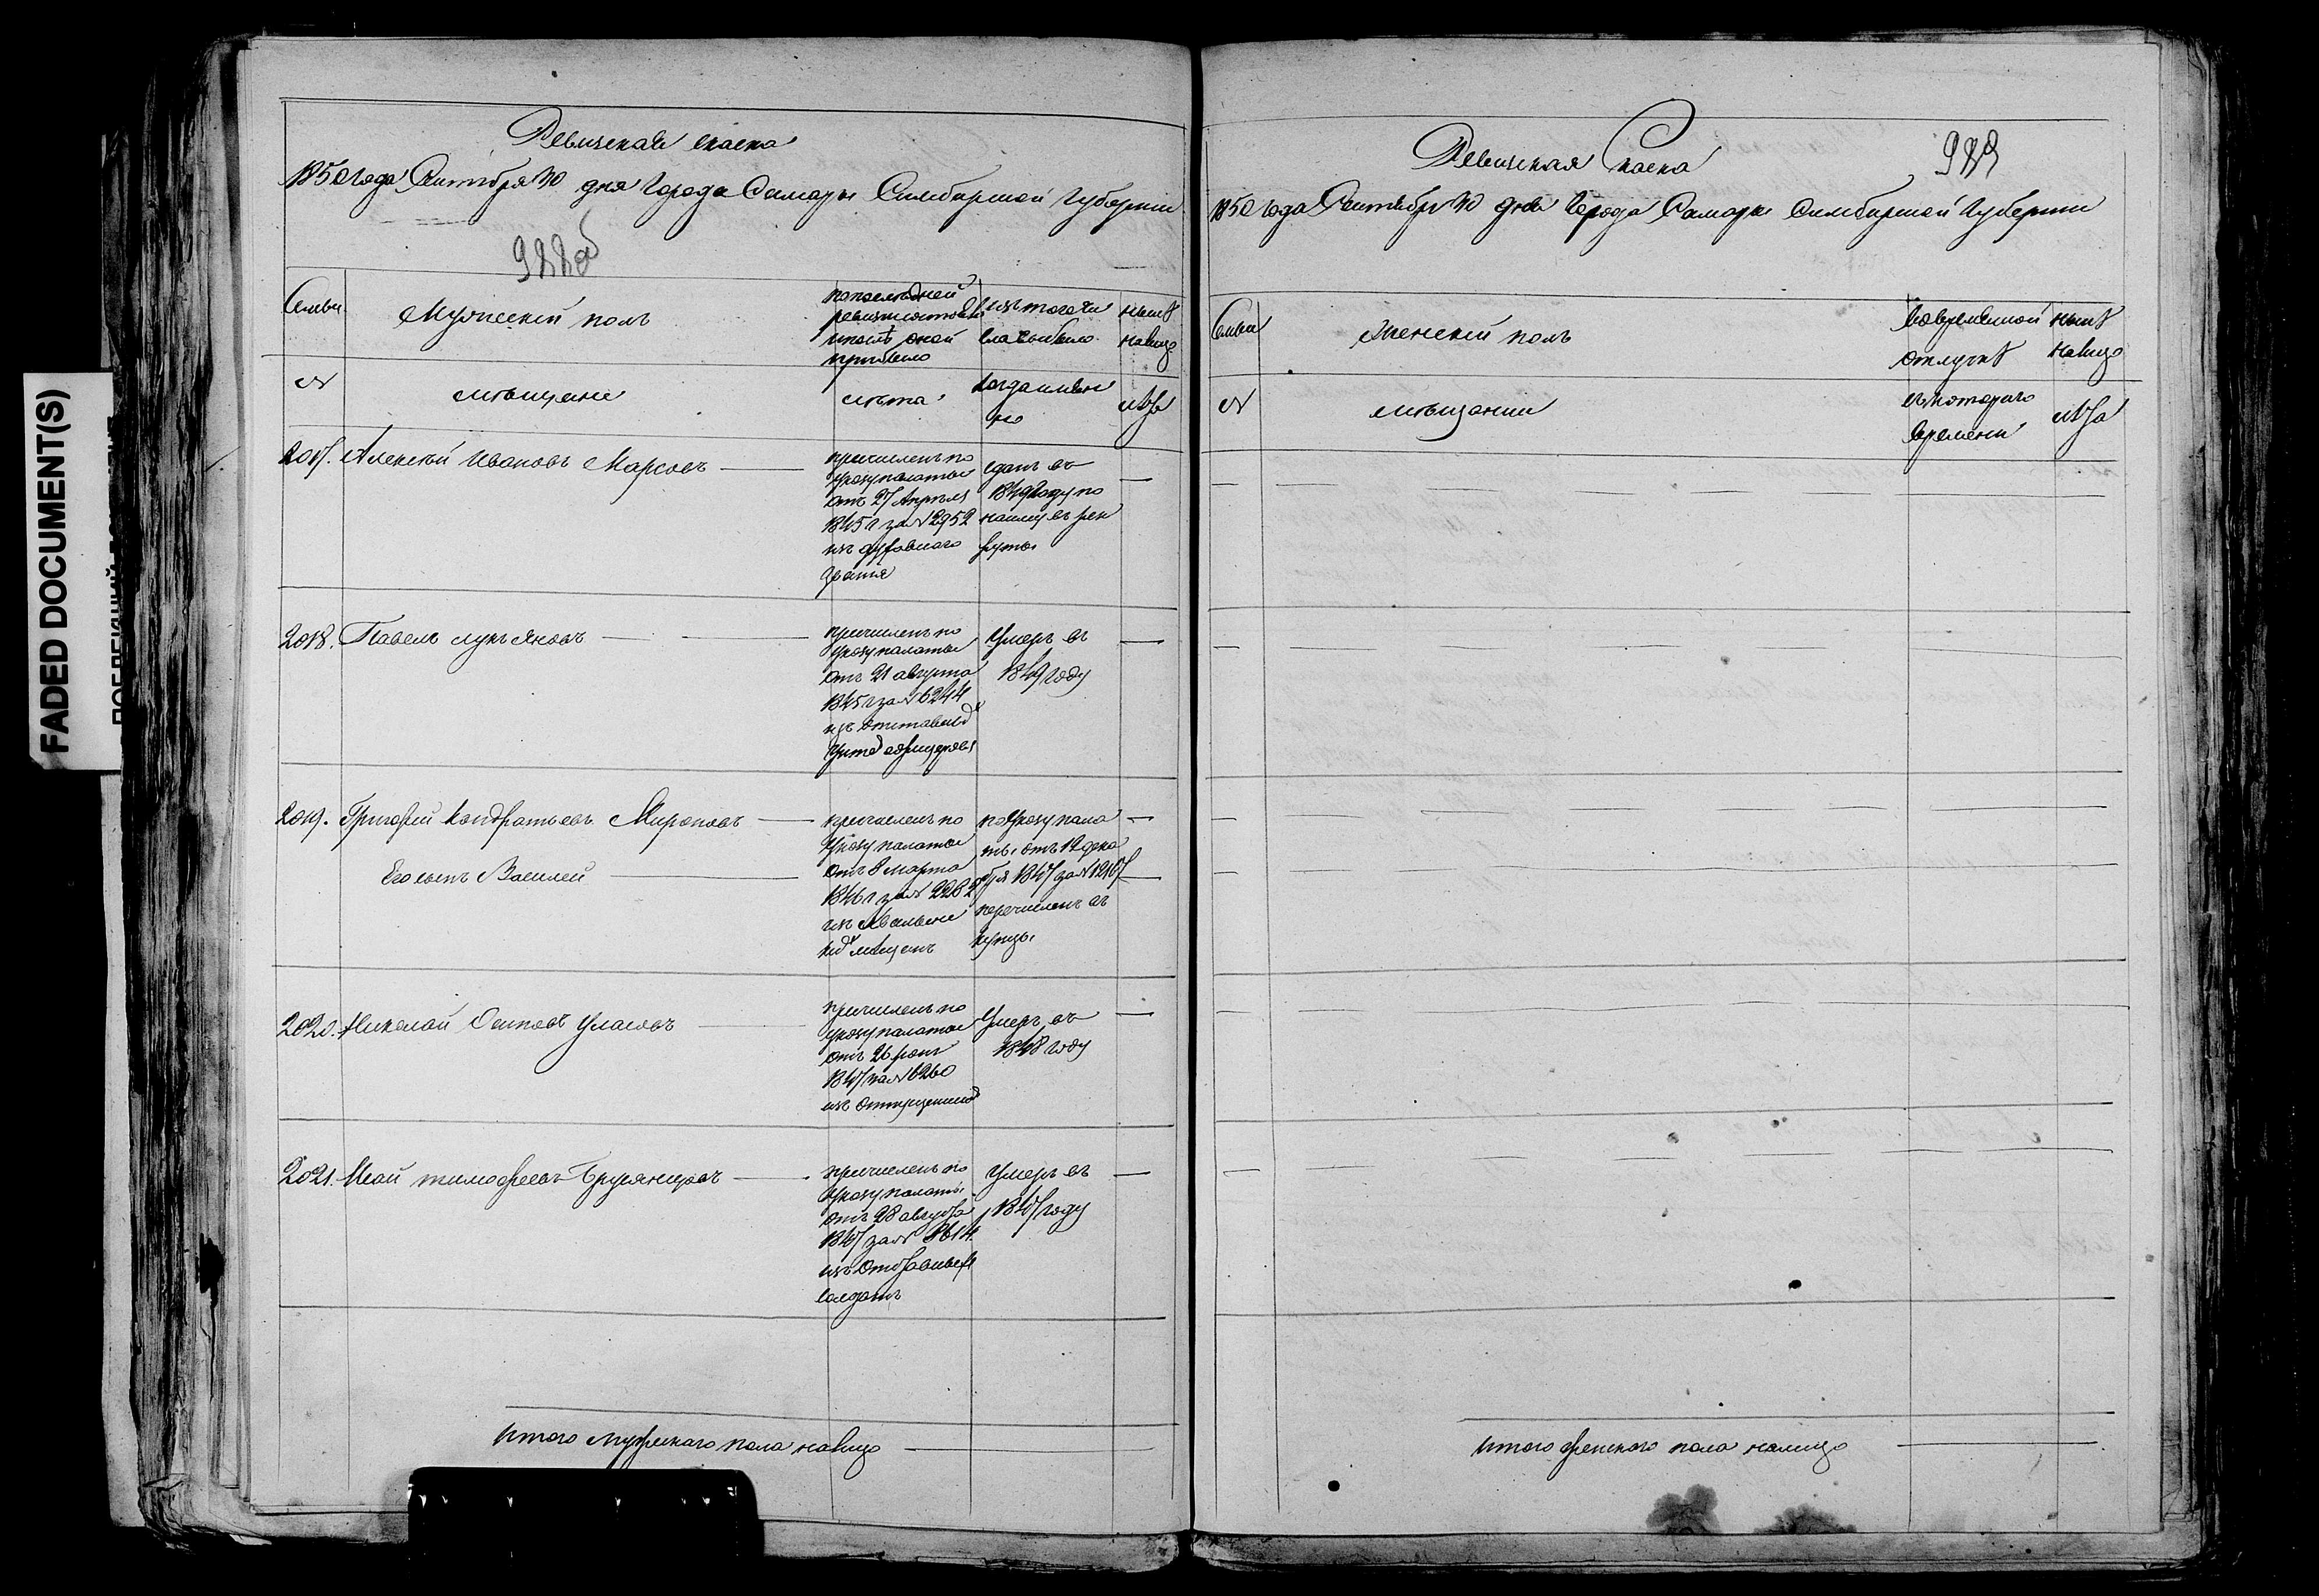 FADED DOCUMENT(S)
Ревизская скаска
1850 года Сентября 30 дня Города Самары Симбирской Губерніи
988об
Семьи
Мужескій полъ
по последней
ревизіи состояло
и послѣ оной
прибыло
изъ того чи
сла выбыло
нынѣ
налицо
№
мѣщане
лѣта
когда имян
но
лѣта
2017. Алексѣй Ивановъ Марсовъ
причисленъ по
указу палаты
отъ 27 Апрѣля
1845 г за № 2952
изъ духовнаго
званія
сданъ въ
1849 году по
найму въ рек
руты
2018. Павелъ лукъяновъ
причисленъ по
указу палаты
отъ 21 августа
1845 г за № 6244
изъ отставныхъ
Унтеръ офицеровъ
Умеръ въ
1849 году
2019. Григорій Кондратьевъ Мироновъ
Его сынъ Василей
причисленъ по
Указу палаты
отъ 8 марта
1846 г за № 2262
изъ Хвалынс
кихъ мѣщанъ
по Указу пала
ты отъ 12 дека
бря 1847 за № 12167
перечисленъ въ
купцы
2020. Николай Осиповъ Уласовъ
причисленъ по
указу палаты
отъ 26
1847 за № 6260
изъ отпущенныхъ
Умеръ въ
1848 году
2021. Тимофеевъ Брусянцовъ
причисленъ по
Указу палаты
отъ 28 августа
1847 за № 8614
изъ Отставныхъ
солдатъ
Умеръ въ
1847 году
Итого мужескаго пола налицо
Ревизская Скаска
989
1850 года Сентября 30 дня Города Самары Симбирской Губерніи
Семьи
Женскій полъ
во временной
отлучкѣ
нынѣ
налицо
№
мѣщанки
съ котораго
времени
лѣта
Итого женскаго пола налицо